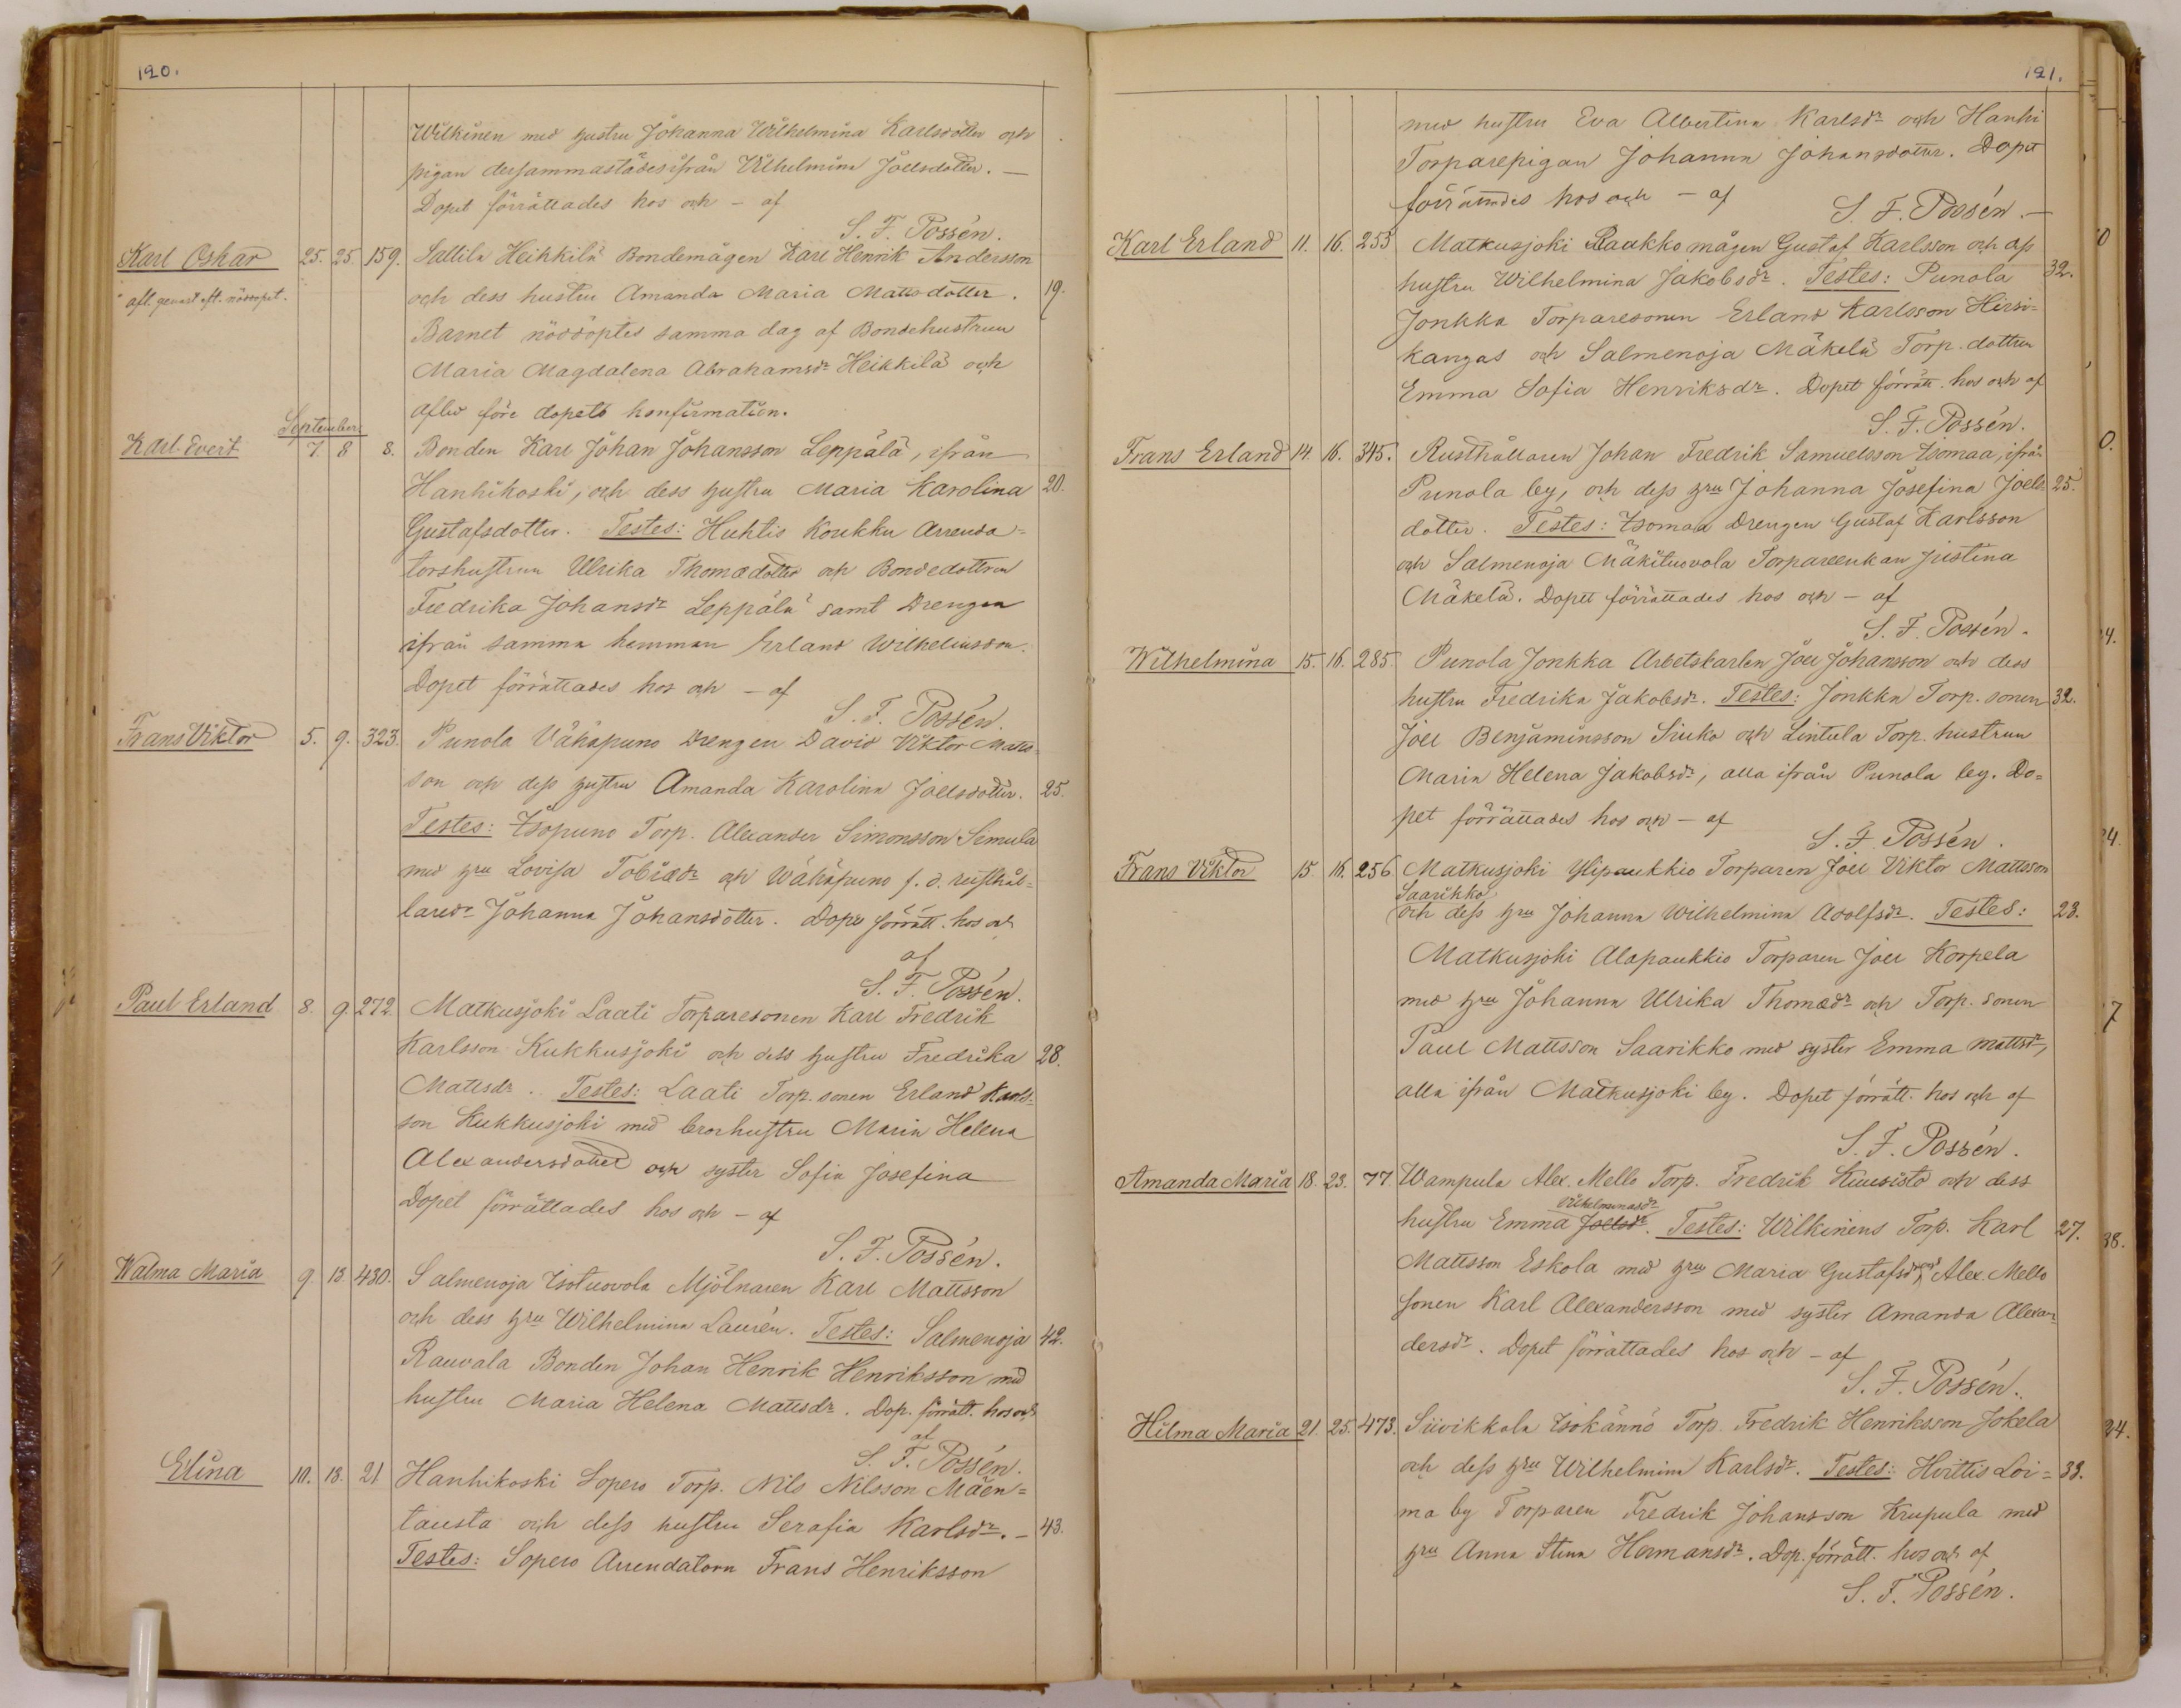 120.
Wilkinen med hustru Johanna Wilhelmina Karlsdotter och
pigan dersammastädesifrån Wilhelmina Joelsdotter. —
Dopet förrättades hos och – af
S. F. Possén.
Karl Oskar 25. 25. 159. Sallila Heikkilä Bondemågen Karl Henrik Andersson
och dess hustru Amanda Maria Mattsdotter. 19.
Barnet nöddöptes samma dag af Bondehustrun
Maria Magdalena Abrahamsdr Heikkilä och
afled före dopets konfirmation.
September
Karl Evert 7. 8 8. Bonden Karl Johan Johansson Leppälä, ifrån
Hanhikoski, och dess hustru Maria Karolina 20.
Gustafsdotter. Testes: Huhtis Koukku Arrenda=
torshustrun Ulrika Thomædotter och Bondedottren
Fredrika Johansdr Leppälä samt Drengen
ifrån samma hemman Erland Wilhelmsson.
Dopet förrättades hos och – af
S. F. Possén.
Frans Viktor 5. 9. 323. Punola Vähäpuno Drengen David Viktor Matts=
son och dess hustru Amanda Karolina Joelsdotter. 25.
Testes: Isopuno Torp. Alexander Simonsson Simula
med hru Lovisa Tobiædr och Wähäpuno f. d. rusthål=
laredr Johanna Johansdotter. Dopet förrätt. hos och
af
S. F. Possén.
Paul Erland 8. 9. 272. Matkusjoki Laati Torparesonen Karl Fredrik
Karlsson Kukkusjoki och dess hustru Fredrika 28.
Mattsdr. Testes: Laati Torp. sonen Erland Karls=
son Kukkusjoki med brorhustru Maria Helena
Alexandersdotter och syster Sofia Josefina
Dopet förrättades hos och – af
S. F. Possén.
Walma Maria 9. 13. 430. Salmenoja Isotuovola Mjölnaren Karl Mattsson
och dess hru Wilhelmina Laurén. Testes: Salmenoja 42.
Rauvala Bonden Johan Henrik Henriksson med
hustru Maria Helena Mattsdr. Dop. förrätt. hos och
af
S. F. Possén.
Elina 10. 13. 21 Hanhikoski Sopero Torp. Nils Nilsson Mäen=
tausta och dess hustru Serafia Karlsdr. – 43.
Testes: Sopero Arrendatorn Frans Henriksson
121.
med hustru Eva Albertina Karlsdr och Hanhi
Torparepigan Johanna Johansdotter. Dopet
förrättades hos och – af
S. F. Possén. –
Karl Erland 11. 16. 253 Matkusjoki Raukko mågen Gustaf Karlsson och dess
hustru Wilhelmina Jakobsdr. Testes: Punola 32.
Jonkka Torparesonen Erland Karlsson Hirsi=
kangas och Salmenoja Mäkelä Torp. dottren
Emma Sofia Henriksdr. Dopet förrätt. hos och af
S. F. Possén.
Frans Erland 14. 16. 345. Rusthållaren Johan Fredrik Samuelsson Isomaa, ifrån
Punola by, och dess hru Johanna Josefina Joels 25.
dotter. Testes: Isomaa Drengen Gustaf Karlsson
och Salmenoja Mäkituovola Torpareenkan Justina
Mäkelä. Dopet förrättades hos och – af
S. F. Possén.
Wilhelmina 15. 16. 285. Punola Jonkka Arbetskarlen Joel Johansson och dess
hustru Fredrika Jakobsdr. Testes: Jonkka Torp. sonen 32.
Joel Benjaminsson Siuko och Lintula Torp. hustrun
Maria Helena Jakobsdr, alla ifrån Punola by. Do=
pet förrättades hos och – af
S. F. Possén.
Frans Viktor 15. 16. 256 Matkusjoki Ylipaukkio Torparen Joel Viktor Mattsson
Saarikko
och dess hru Johanna Wilhelmina Adolfsdr. Testes: 23.
Matkusjoki Alapaukkio Torparen Joel Korpela
med hru Johanna Ulrika Thomædr och Torp. sonen
Paul Mattsson Saarikko med syster Emma Mattsdr,
alla ifrån Matkusjoki by. Dopet förrätt. hos och af
S. F. Possén.
Amanda Maria 18. 23. 77 Wampula Alex. Mello Torp. Fredrik Kuusisto och dess
Vilhelminasdr
hustru Emma Joelsdr. Testes: Wilkinens Torp. Karl 27.
Mattsson Eskola med hru Maria Gustafsdr, Alex. Mello
sonen Karl Alexandersson med syster Amanda Alexan=
dersdr. Dopet förrättades hos och – af
S. F. Possén.
Hilma Maria 21. 25. 473. Suvikkala Isokännö Torp. Fredrik Henriksson Jokela
och dess hru Wilhelmina Karlsdr. Testes: Hvittis Loi= 33.
ma by Torparen Fredrik Johansson Krupula med
hru Anna Stina Hermansdr. Dop. förrätt. hos och af
S. F. Possén.